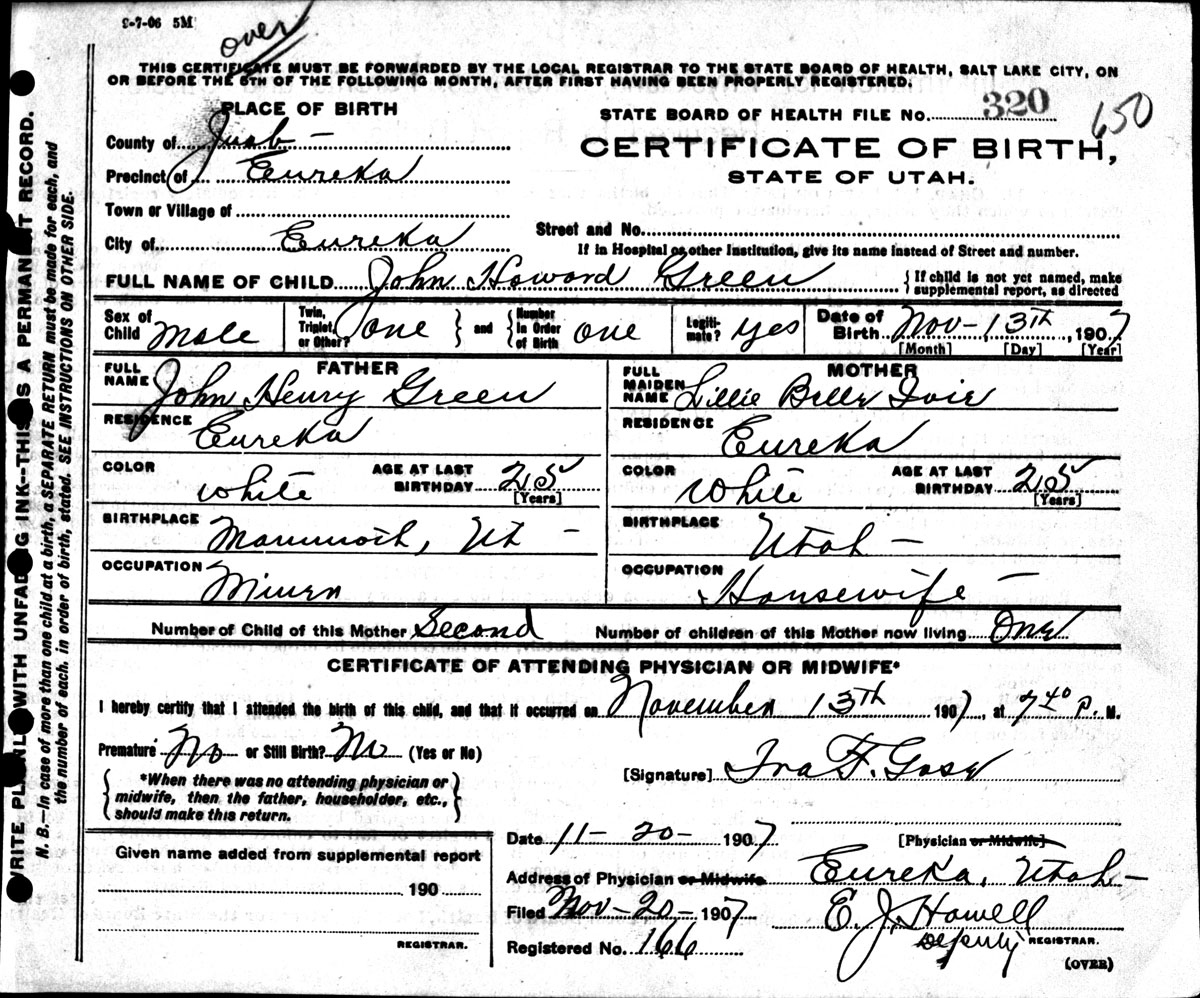 9-7-06 5M
over
THIS CERTIFICATE MUST BE FORWARDED BY THE LOCAL REGISTRAR TO THE STATE BOARD OF HEALTH, SALT LAKE CITY, ON
OR BEFORE THE 5TH OF THE FOLLOWING MONTH, AFTER FIRST HAVING BEEN PROPERLY REGISTERED.
PLACE OF BIRTH
STATE BOARD OF HEALTH FILE No. 320 650
County of Juab
CERTIFICATE OF BIRTH,
Precinct of Eureka
STATE OF UTAH.
Town or Village of
Street and No.
City of Eureka
If in Hospital or other Institution, give its name instead of Street and number.
FULL NAME OF CHILD John Howard Green {If child is not yet named, make supplemental report, as directed
Sex of Child Male Twin, Triplet, or Other? one } and { Number in Order of Birth one Legitimate? yes Date of Birth Nov- 13th, 1907
[Month] [Day] [Year]
FATHER MOTHER
FULL NAME John Henry Green FULL MAIDEN NAME Lillie Belle Ivie
RESIDENCE Eureka RESIDENCE Eureka
COLOR White AGE AT LAST BIRTHDAY 25 [Years] COLOR White AGE AT LAST BIRTHDAY 25 [Years]
BIRTHPLACE Mammoth, Ut - BIRTHPLACE Utah -
OCCUPATION Miner OCCUPATION Housewife -
Number of Child of this Mother Second Number of children of this Mother now living One
CERTIFICATE OF ATTENDING PHYSICIAN OR MIDWIFE*
I hereby certify that I attended the birth of this child, and that it occurred on November 13th 1907, at 7 40 P. M.
Premature No or Still Birth? No (Yes or No)
[Signature]
*When there was no attending physician or
midwife, then the father, householder, etc.,
should make this return.
Date 11-20-1907 [Physician or Midwife]
Given name added from supplemental report
Address of Physician or Midwife Eureka, Utah-
190
Filed Nov-20-1907 E. J. Howell
REGISTRAR. Registered No. 166 Deputy REGISTRAR.
(OVER)
WRITE PLAINLY WITH UNFADING INK--THIS IS A PERMANENT RECORD.
N. B.--In case of more than one child at a birth, a SEPARATE RETURN must be made for each, and
the number of each, in order of birth, stated. SEE INSTRUCTIONS ON OTHER SIDE.